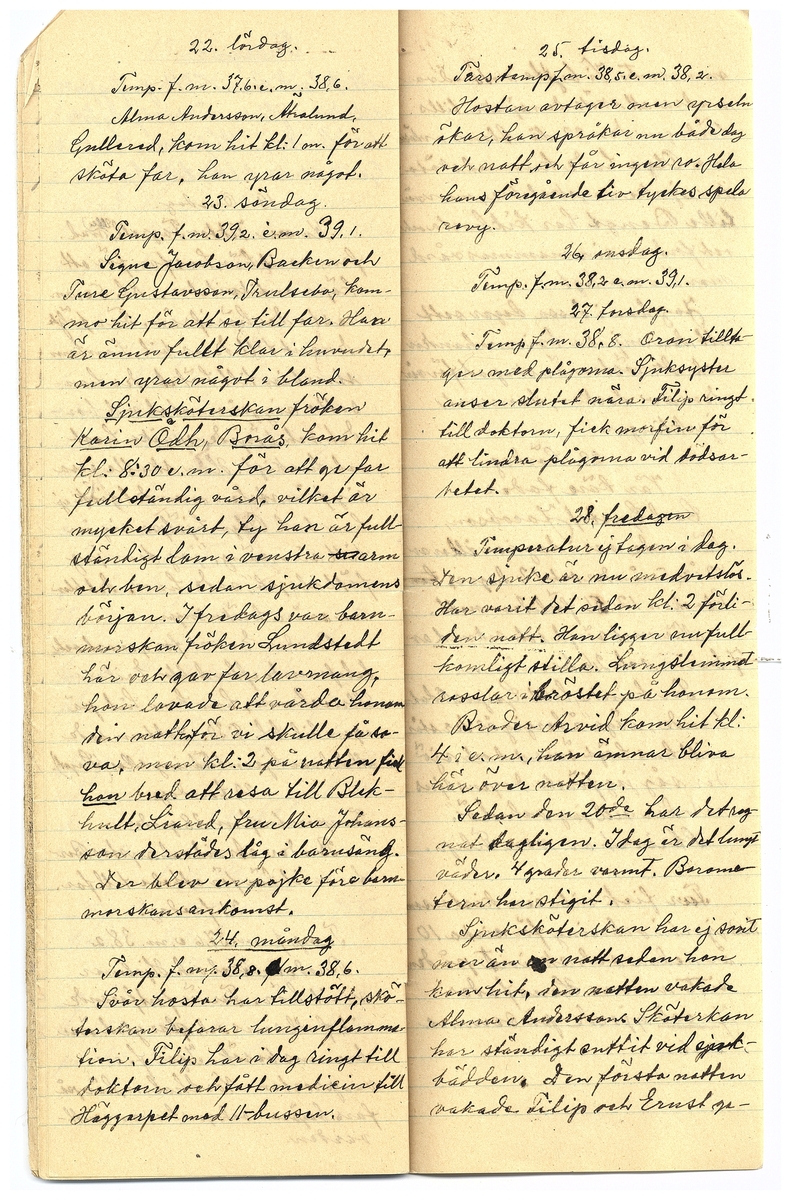 22. lördag.
Temp. f. m. 37,6. e. m. 38,6.
Alma Andersson, Åkalund,
Gullered, kom hit kl: 1 m. för att
sköta far, han yrar något.
23. söndag.
Temp. f. m. 39,2. e. m. 39,1.
Signe Jacobson, Backen och
Ture Gustavsson, Trulsebo, kom-
mo hit för att se till far. Han
är ännu fullt klar i huvudet,
men yrar något i bland.
Sjuksköterskan fröken
Karin Ödh, Borås, kom hit
kl: 8:30 e. m. för att ge far
fullständig vård, vilket är
mycket svårt, ty han är full-
ständigt lam i venstra arm
och ben, sedan sjukdomens
början. I fredags var barn-
morskan fröken Lundstedt
här och gav far lavmang,
hon lovade att vårda honom
den natten för vi skulle få so-
va, men kl: 2 på natten fick
hon bred att resa till Blek-
hult, Liared, fru Mia Johans-
son derstädes låg i barnsäng.
Der blev en pojke före barn-
morskans ankomst.
24. måndag
Temp. f. m. 38,8. e. m. 38,6.
Svår hosta har tillstött, skö-
terskan befarar lunginflamma-
tion. Filip har i dag ringt till
doktorn och fått medicin till
Häggarpet med 11-bussen.
25. tisdag.
Fars temp f. m. 38,5. e. m. 38,2.
Hostan avtager men yrseln
ökar, han språkar nu både dag
och natt och får ingen ro. Hela
hans föregående liv tyckes spela
revy.
26. onsdag.
Temp. f. m. 38,2 e. m. 39,1.
27. torsdag.
Temp f. m. 38,8. Oron tillta-
ger med plågorna. Sjuksyster
anser slutet nära. Filip ringt
till doktorn, fick morfin för
att lindra plågorna vid dödsar-
betet.
28. fredagen
Temperatur ej tagen i dag.
Den sjuke är nu medvetslös.
Har varit det sedan kl: 2 förli-
den natt. Han ligger nu full-
komligt stilla. Lungsleimmet
rosslar i bröstet på honom.
Broder Arvid kom hit kl:
4 i e. m., han ämnar bliva
här över natten.
Sedan den 20de har det reg-
nat dagligen. I dag är det lungt
väder. 4 grader varmt. Barome-
tern har stigit.
Sjuksköterskan har ej sovit
mer än en natt sedan hon
kom hit, den natten vakade
Alma Andersson. Sköterkan
har ständigt suttit vid sjuk-
bädden. Den första natten
vakade Filip och Ernst ge-